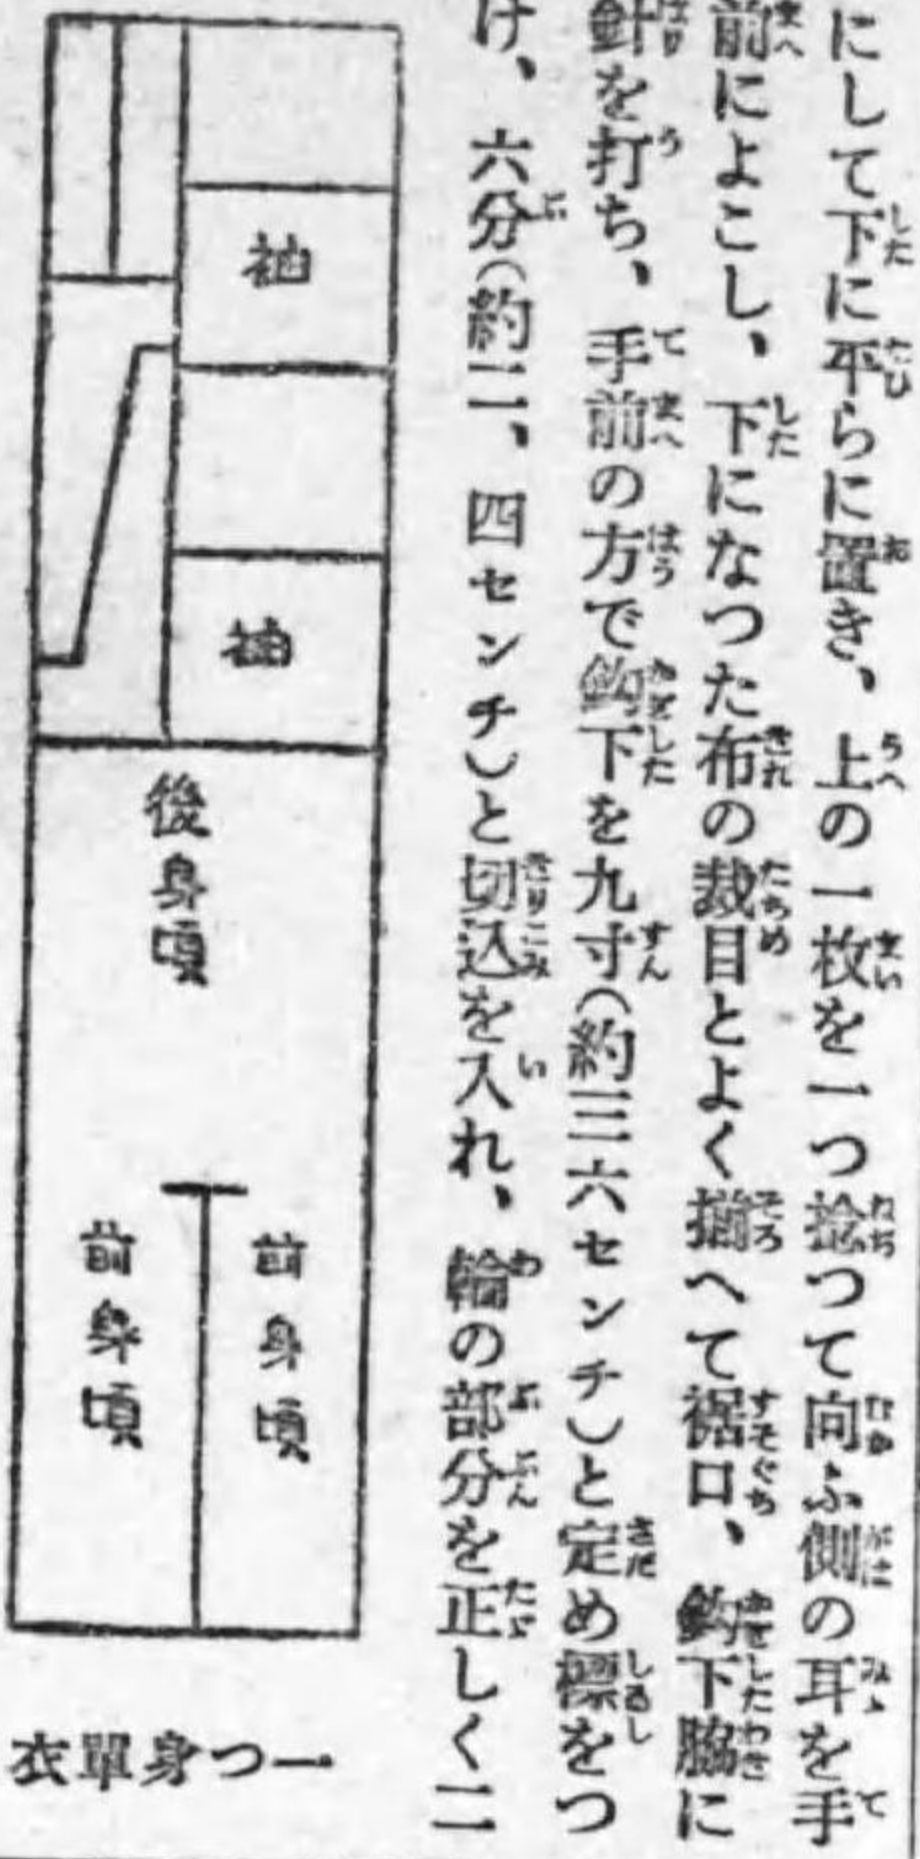 にして下に平らに置き、上の一枚を一つ捻つて向ふ側の耳を手
前によこし、下になつた布の裁目とよく揃へて裾口、鈎下脇に
針を打ち、手前の方で鈎下を九寸(約三六センチ)と定め標をつ
け、六分(約二、四センチ)と切込を入れ、輪の部分を正しく二
袖
袖
後身頃
前身頃
前身頃
一つ身單衣